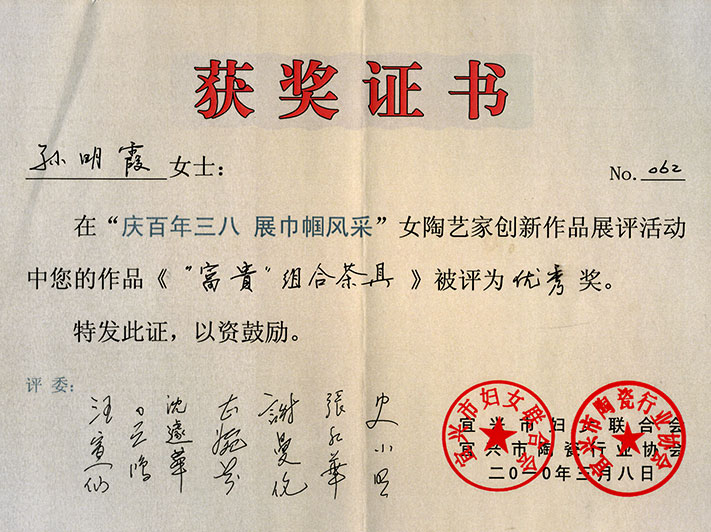 获奖证书
孙明霞 女士：
No. 062
在“庆百年三八 展巾帼风采”女陶艺家创新作品展评活动
中您的作品《“富贵”组合茶具》被评为优秀奖。
特发此证，以资鼓励。
评委：
沈遽华
謝曼伦
張红華
史小明
宜兴市妇女联合会
宜兴市陶瓷行业协会
二〇一〇年三月八日
宜兴市妇女联合会
宜兴市陶瓷行业协会